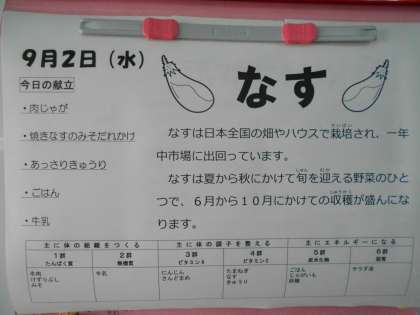 9月2日（水）
なす
今日の献立
・肉じゃが
・焼きなすのみそだれかけ
・あっさりきゅうり
・ごはん
・牛乳
なすは日本全国の畑やハウスで栽培され、一年
中市場に出回っています。
なすは夏から秋にかけて旬を迎える野菜のひと
つで、６月から１０月にかけての収穫が盛んにな
ります。
主に体の組織をつくる 主に体の調子を整える 主にエネルギーになる
1群 2群 3群 4群 5群 6群
たんぱく質 無機質 ビタミンA ビタミンC 炭水化物 脂質
牛肉 牛乳 にんじん たまねぎ ごはん サラダ油
けずりぶし さんどまめ なす じゃがいも
みそ きゅうり 砂糖